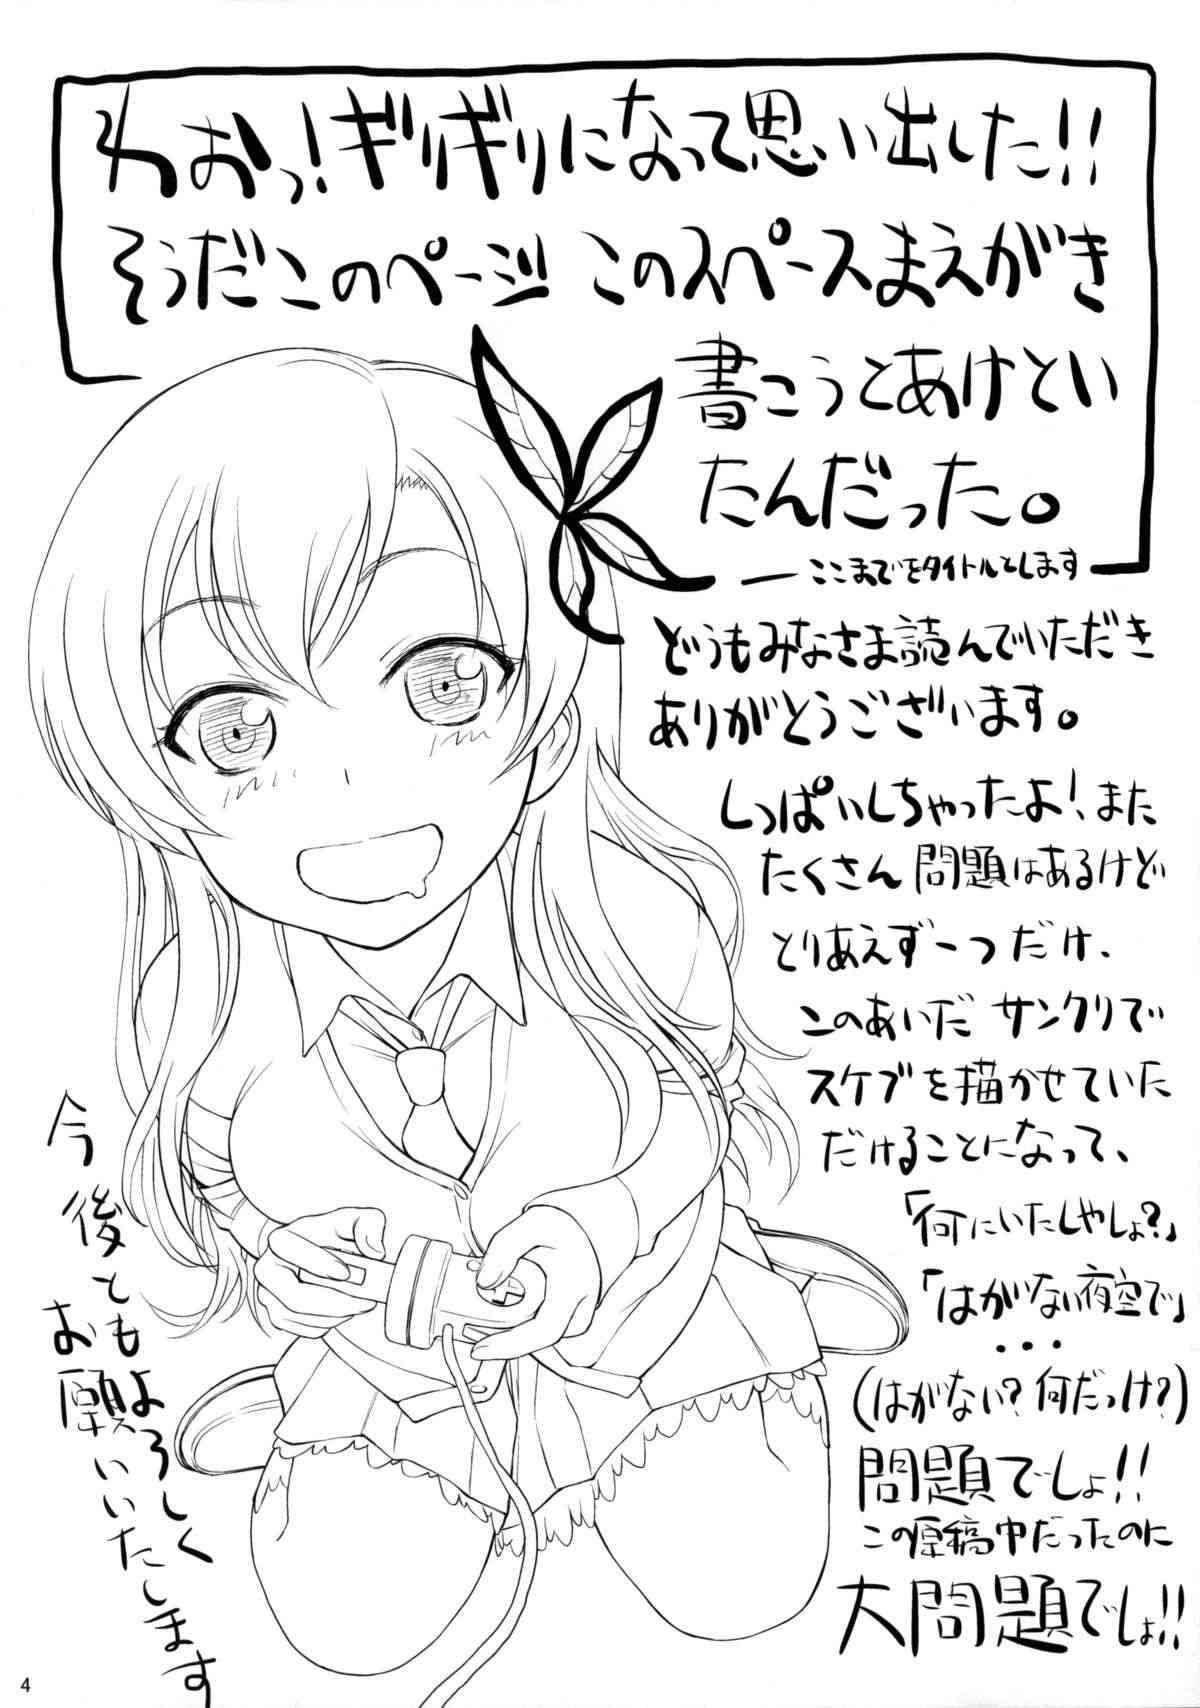 わおっ!ギリギリになって思い出した!!
そうだこのページ このスペースまえがき
書こうとあけとい
たんだった。
ーここまでをタイトルとします
どうもみなさま読んでいただき
ありがとうございます。
しっぱいしちゃったよ!また
たくさん問題はあるけど
とりあえず一つだけ、
このあいだ サンクリで
スケブを描かせていた
だけることになって、
「何にいたしやしょ?」
「はがない夜空で」
・・・
(はがない?何だっけ?)
問題でしょ!!
この原稿中だったのに
大問題でしょ!!
今後ともよろしく
お願いいたします
4